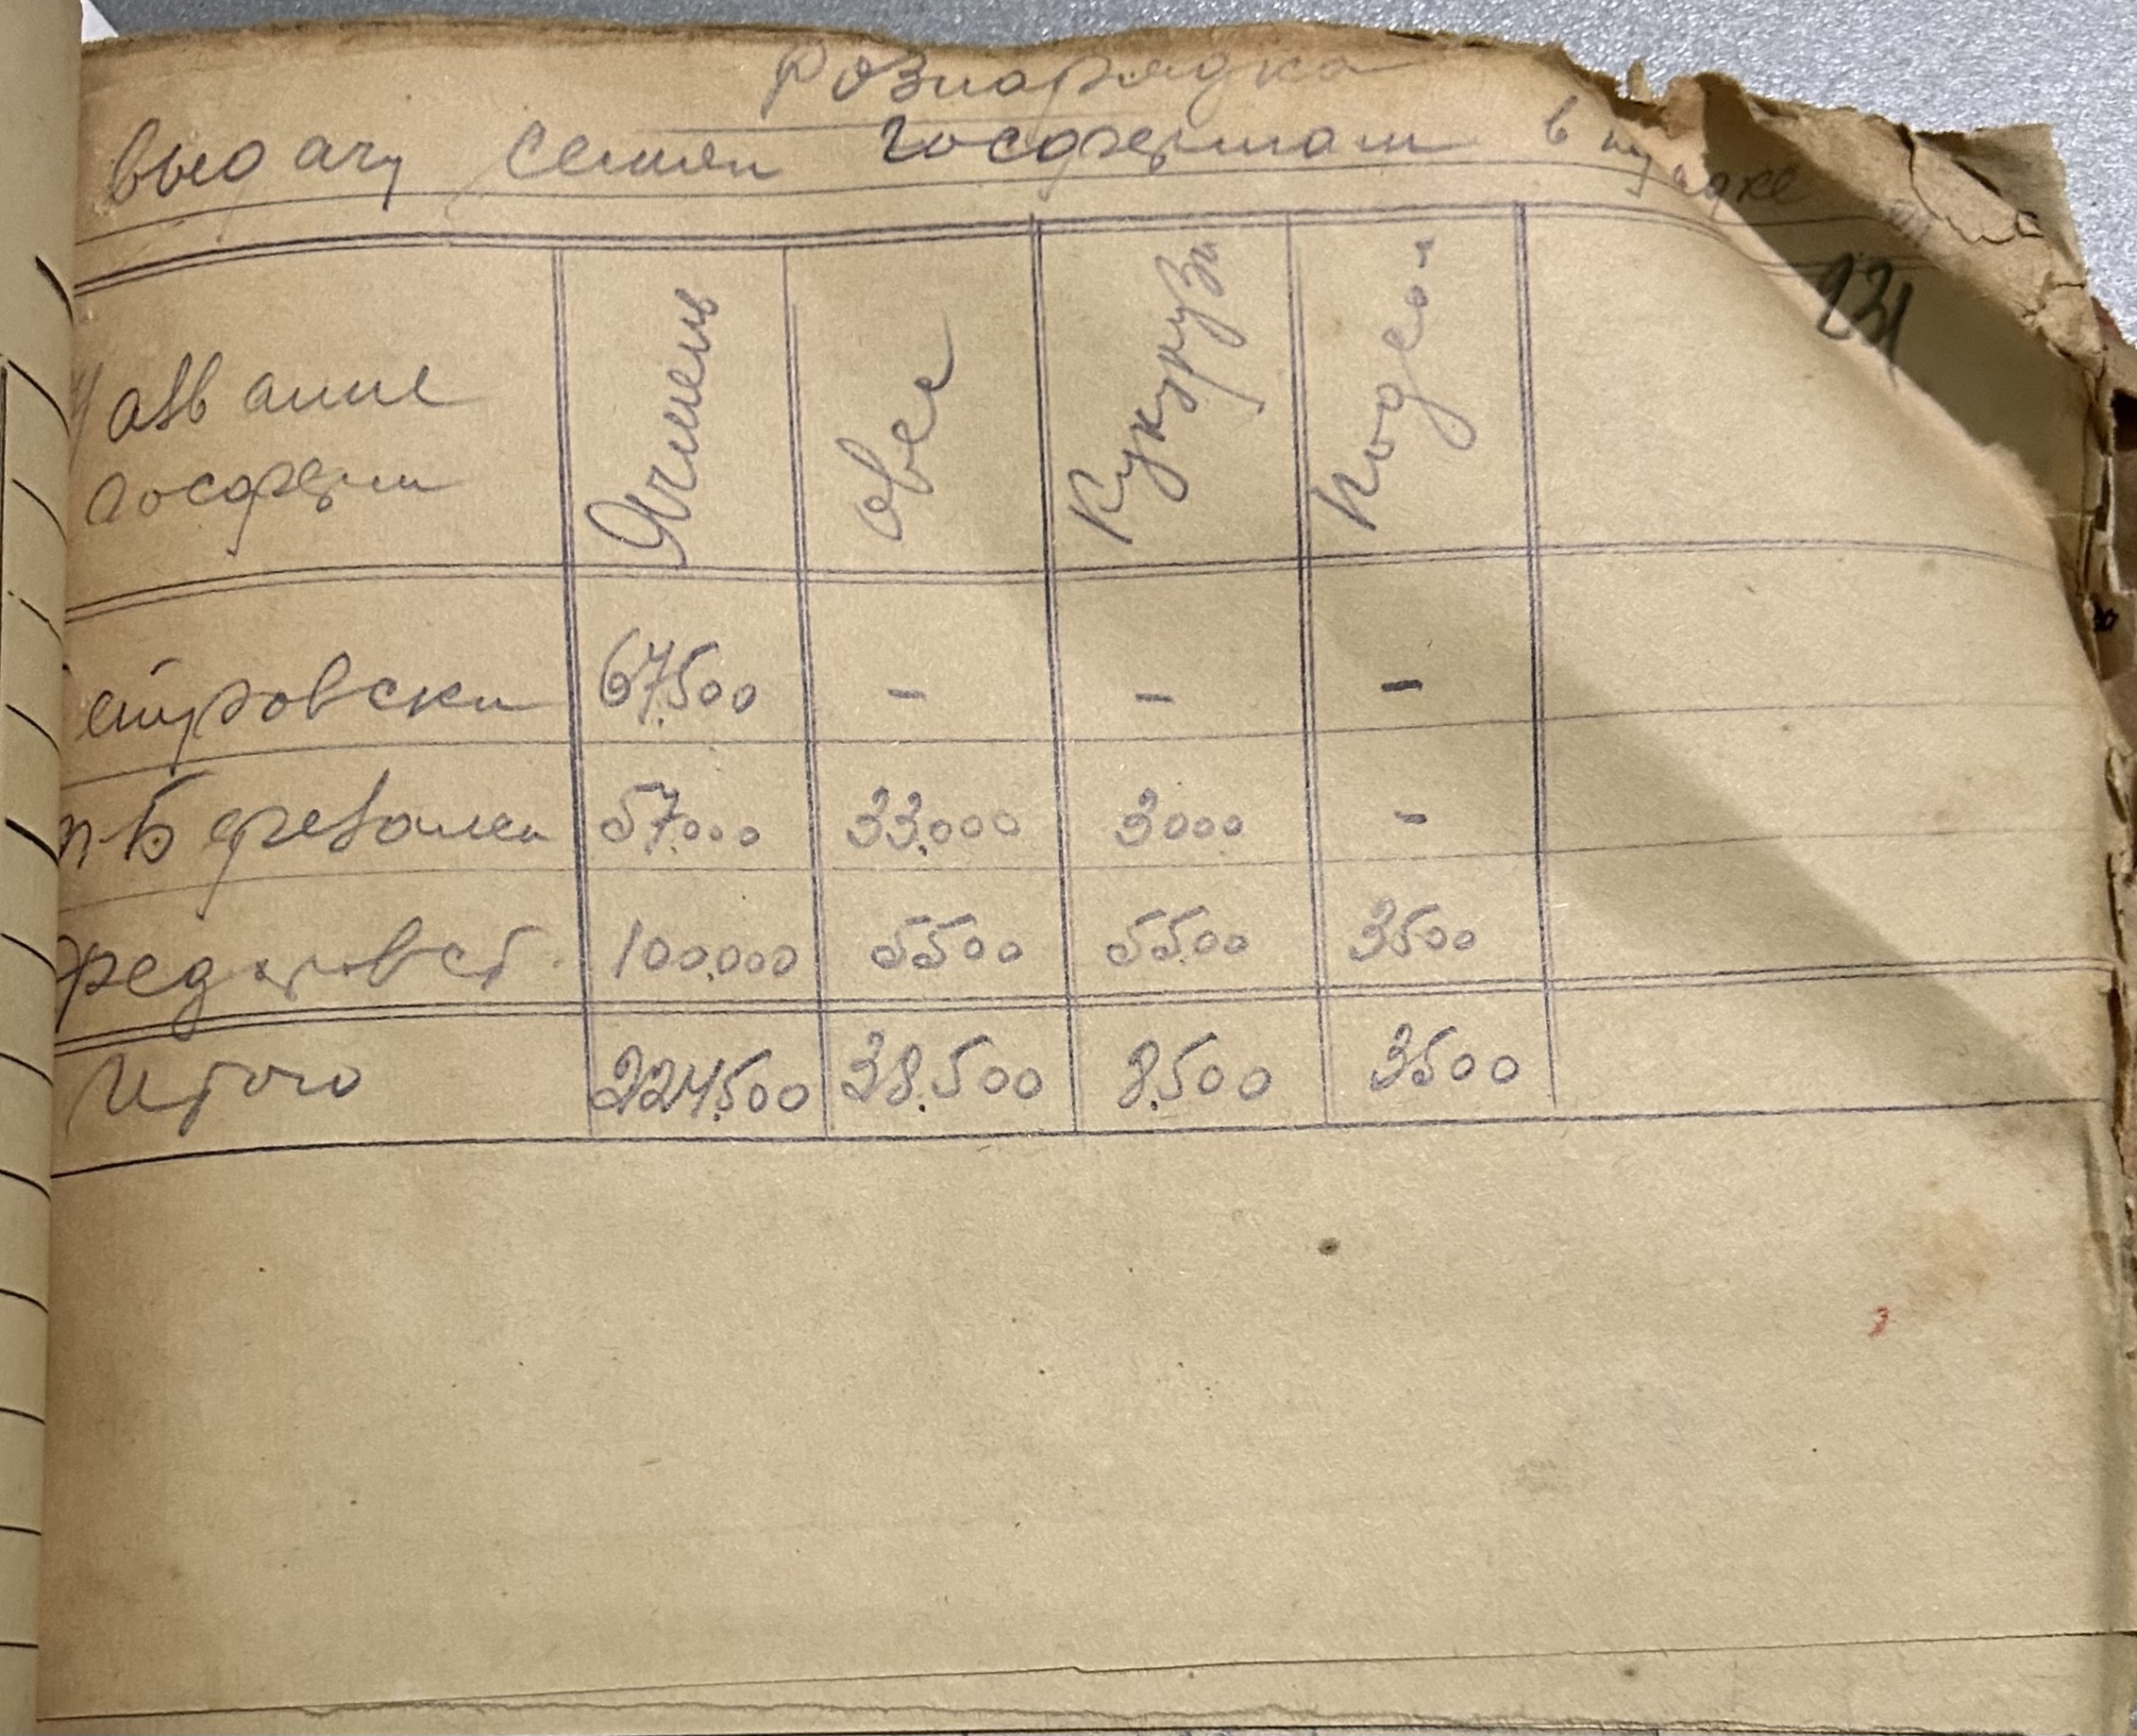 Розпарядка
выдачу семян госфермам в
Название
госферм
Ячмень
овес
Кукурузы
Подсол
67.500 - - -
57.000 33.000 3000 -
100.000 5500 5500 3500
Итого 224.500 38.500 8.500 3500